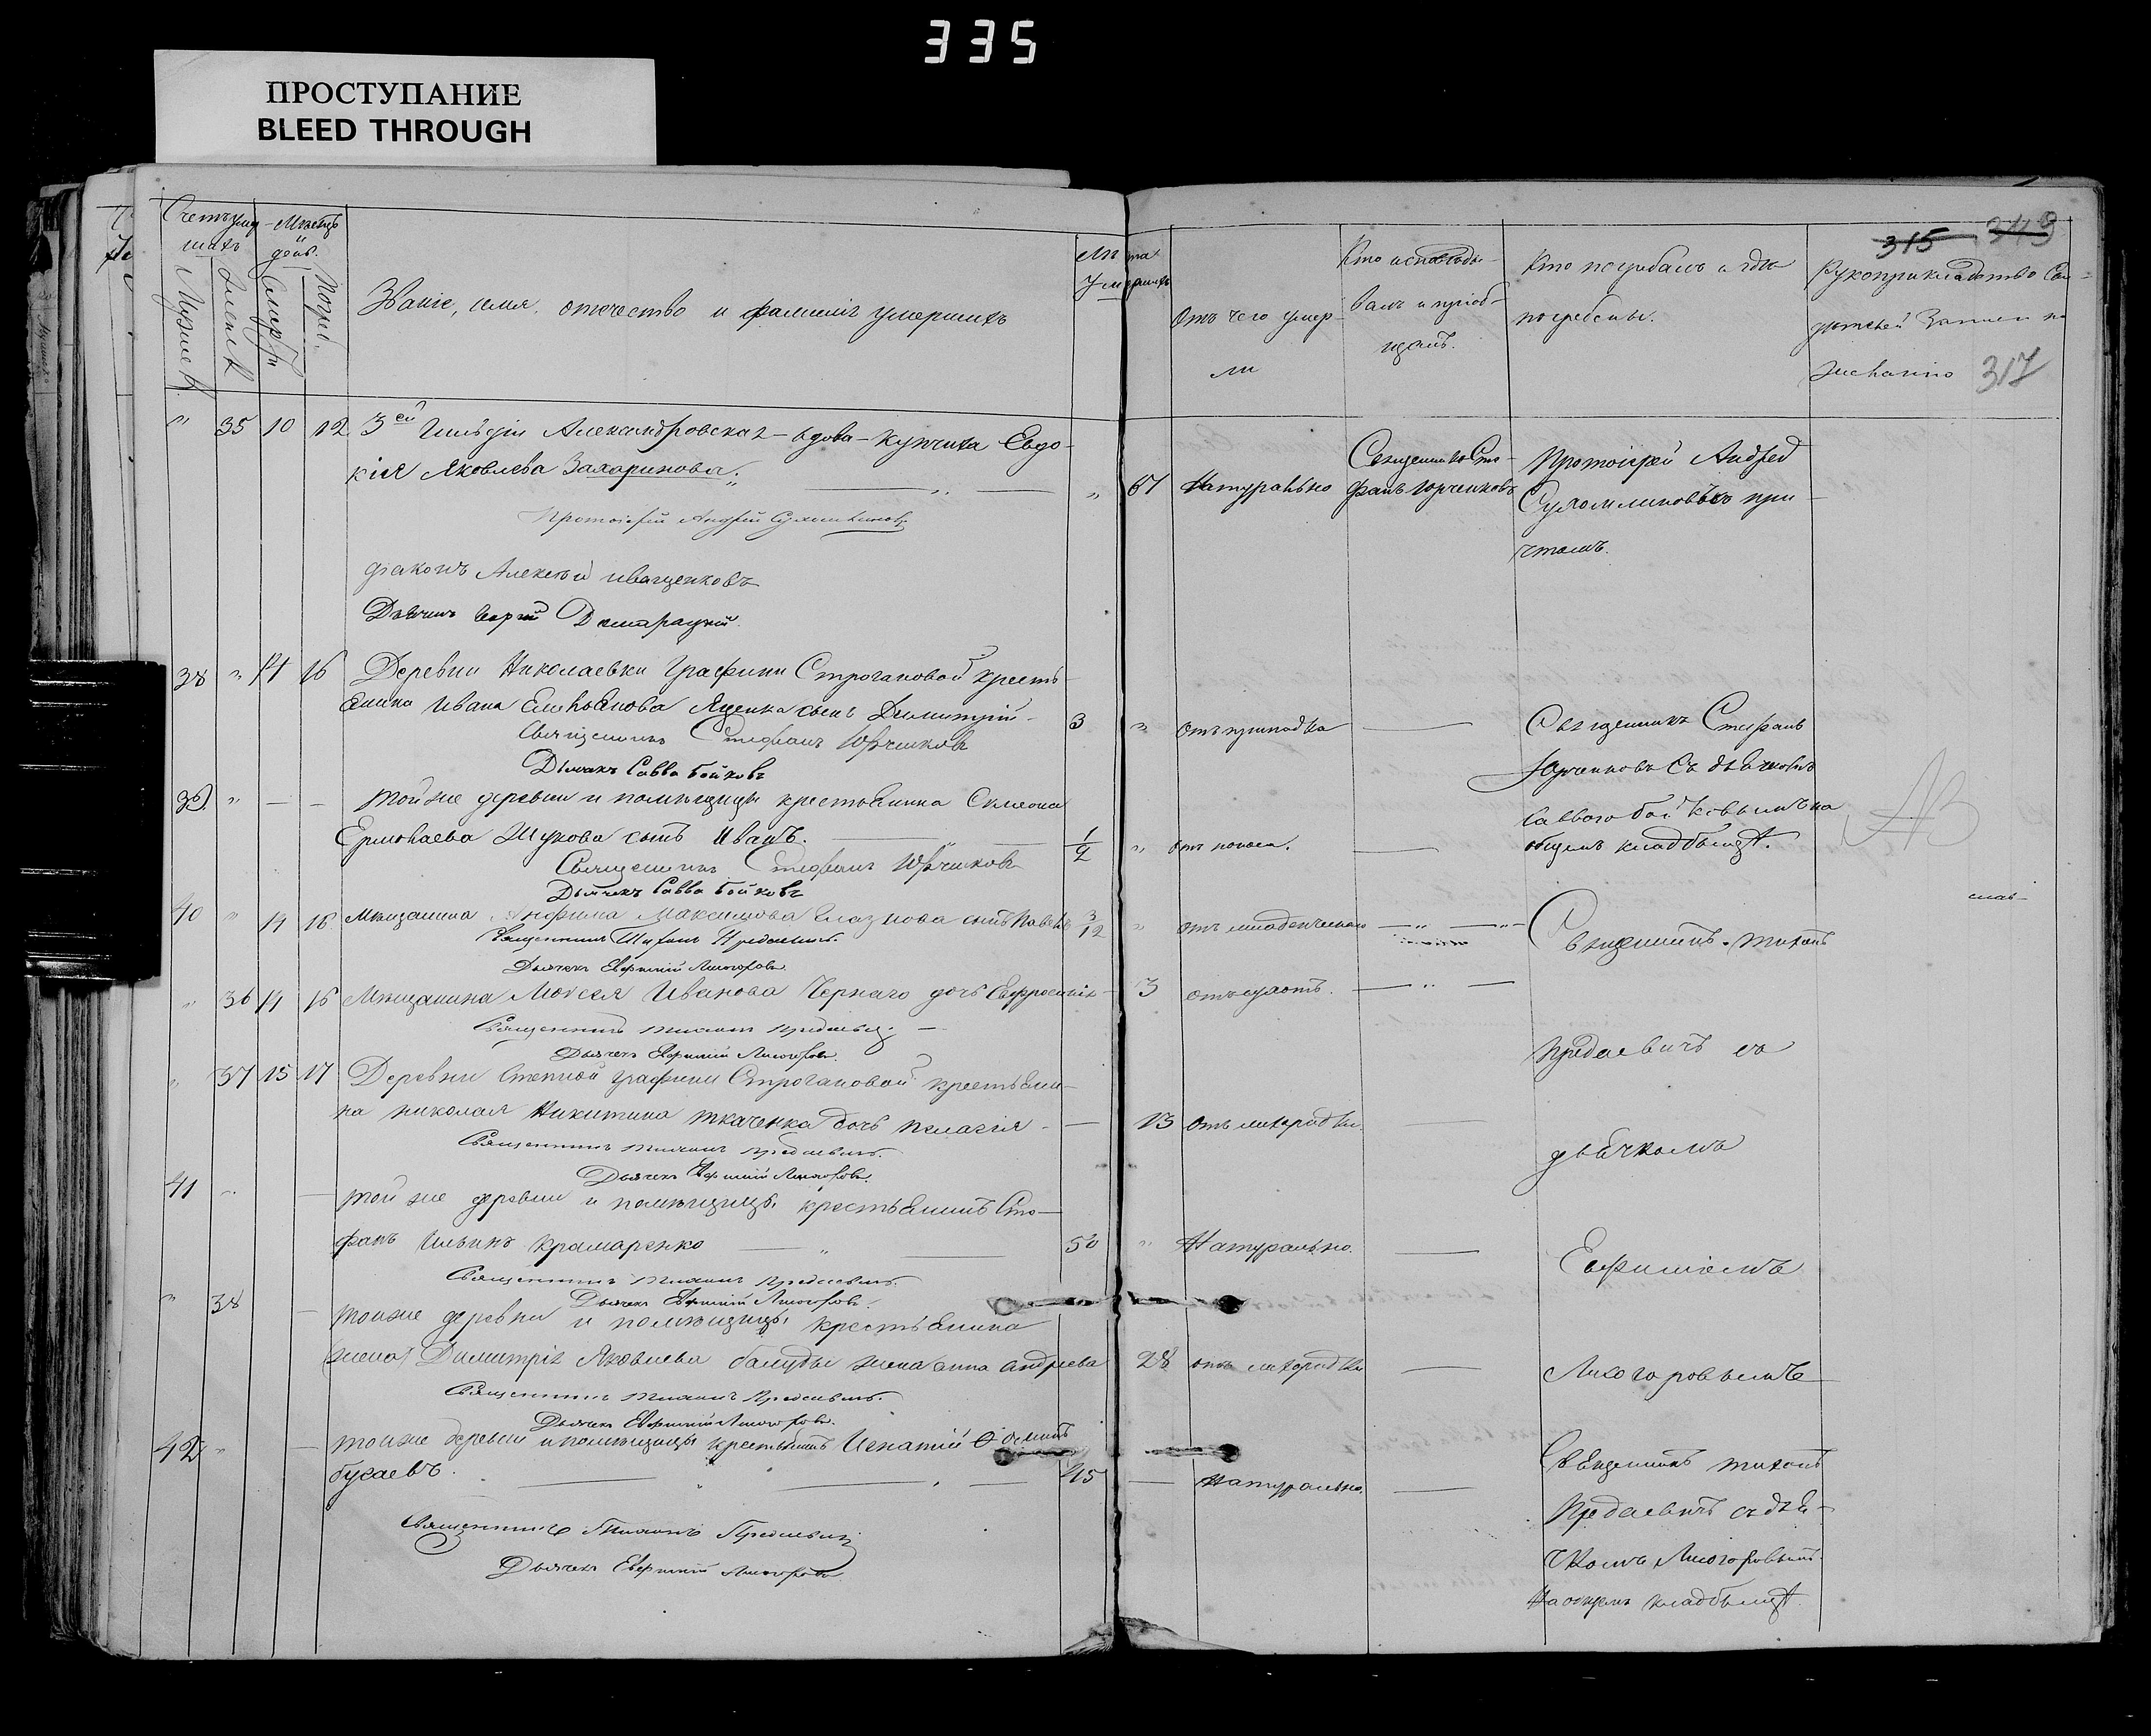 335
ПРОСТУПАНИЕ
BLEED THROUGH
315 343
317
Счетъ умер-
шихъ
Мѣсяцъ
и
день.
Мужеск
Женск
Смерти
Погреб.
Званіе, имя, отчество и фамилія умершихъ
Лѣта
Умершихъ
Отъ чего умер-
ли
Кто исповѣды-
валъ и пріоб-
щалъ.
Кто погребалъ и гдѣ
погребены.
Рукоприкладство Сви-
дѣтелей Записи по
желанію
" 35 10 12 3ей Гильдіи Александровская вдова-купчиха Евдо-
кія Яковлева Захаринова. " 67 Натурально
Священникъ Сте-
фанъ Юрченковъ
Протоіерей Андрей
Сухомлиновъ съ при-
чтомъ.
Протоіерей Андрей Сухомлиновъ
діаконъ Алексѣй Иващенковъ
Дьячекъ
38 " 14 16 Деревни Николаевки Графини Строгановой крестья-
нина Ивана Емельянова Яценка сынъ Димитрій 3 " Отъ припадка
Священникъ Стефанъ Юрченковъ
Дьячекъ Савва Бойковъ
Священникъ Стефанъ
Юрченковъ съ дьячкомъ
Саввою Бойковымъ на
общемъ кладбищѣ.
39 " — — Той же деревни и помѣщицы крестьянина Симеона
Ермолаева Шухова сынъ Иванъ. 1/2 " Отъ поноса.
Священникъ Стефанъ Юрченковъ
Дьячекъ Савва Бойковъ
40 " 14 16 Мѣщанина Анфима Максимова Глазунова сынъ Павелъ 3/12 " отъ младенческой
Священникъ Тихонъ Предаевичъ.
Дьячекъ Евфимій Лисогоровъ.
Священникъ Тихонъ
" 36 14 16 Мѣщанина Моисея Иванова Чернаго дочь Евфросинія 3 отъ сухотъ.
Священникъ Тихонъ Предаевичъ
Дьячекъ Евфимій Лисогоровъ.
Предаевичъ съ
" 37 15 17 Деревни Степной Графини Строгановой крестьяни-
на Николая Никитина Ткаченка дочь Пелагія — 13 Отъ лихорадки.
Священникъ Тихонъ Предаевичъ.
Дьячекъ Евфимій Лисогоровъ.
дьячкомъ
41 Той же деревни и помѣщицы крестьянинъ Сте-
фанъ Ильинъ Крамаренко 50 " Натурально.
Священникъ Тихонъ Предаевичъ
Дьячекъ Евфимій Лисогоровъ.
Евфиміемъ
" 38 Той же деревни и помѣщицы крестьянина
Димитрія Яковлева жена Анна Андреева 28 отъ лихорадки
Священникъ Тихонъ Предаевичъ.
Дьячекъ Евфимій Лисогоровъ.
Лисогоровымъ
42 " Той же деревни и помѣщицы крестьянинъ Игнатій
45 — Натурально.
Священникъ Тихонъ Предаевичъ
Дьячекъ Евфимій Лисогоровъ
Священникъ Тихонъ
Предаевичъ съ дья-
чкомъ Лисогоровымъ
На общемъ кладбищѣ.